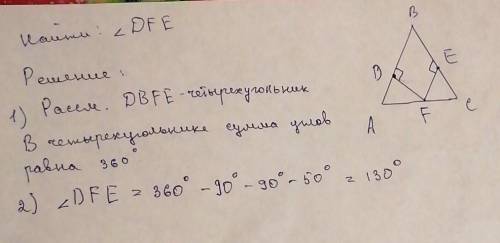 Найти: ∠DFE
Решение:
1) Рассм. DBFE - четырехугольник
В четырехугольнике сумма углов
равна 360°
2) ∠DFE = 360° - 90° - 90° - 50° = 130°
B
E
B
A
F
C